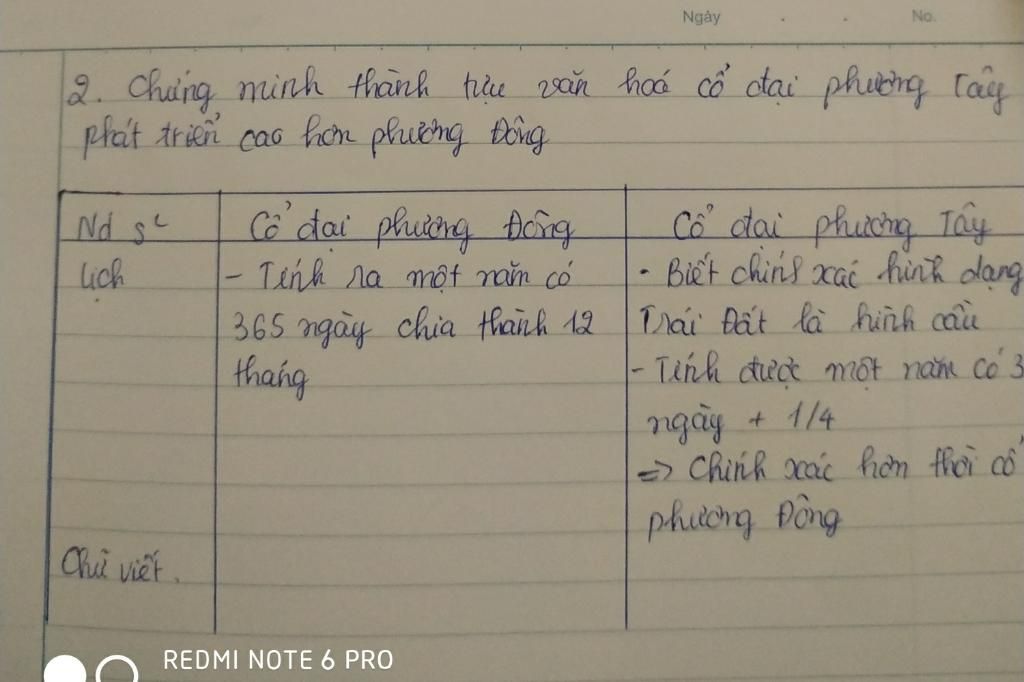 Ngày . . No.
2. Chứng minh thành tựu văn hoá cổ đại phương Tây
phát triển cao hơn phương Đông
Nd s²
Cổ đại phương Đông
Cổ đại phương Tây
Lịch
- Tính ra một năm có
365 ngày chia thành 12
tháng
- Biết chính xác hình dạng
Trái Đất là hình cầu
- Tính được một năm có 3
ngày + 1/4
=> Chính xác hơn thời cổ
phương Đông
Chữ viết.
REDMI NOTE 6 PRO